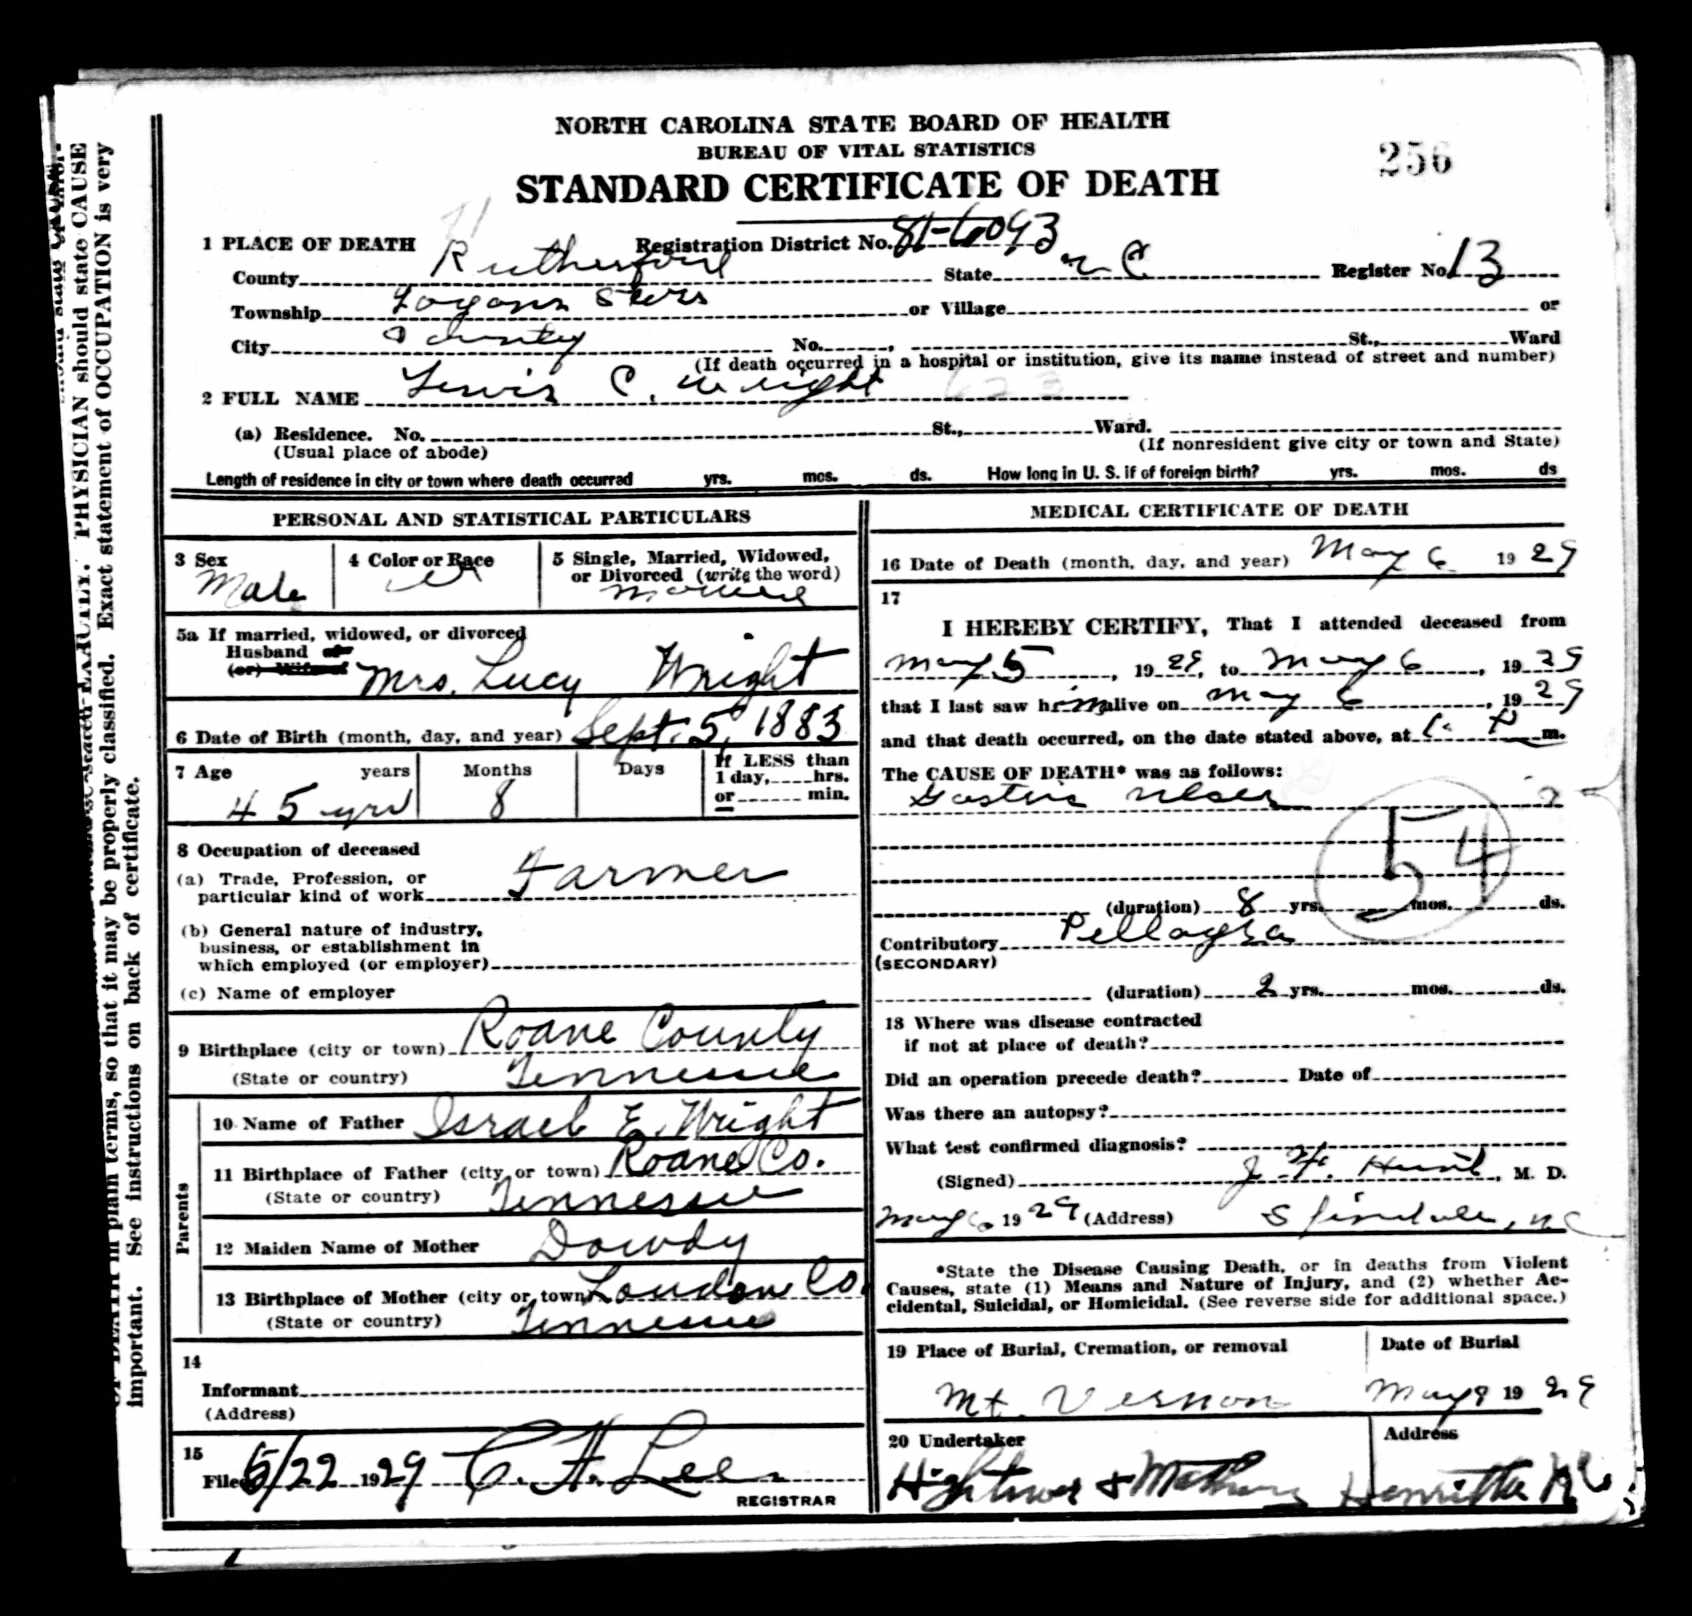 NORTH CAROLINA STATE BOARD OF HEALTH
BUREAU OF VITAL STATISTICS
STANDARD CERTIFICATE OF DEATH
256
1 PLACE OF DEATH Registration District No. 81-6093
County Rutherford State N C Register No. 13
Township Logans Store or Village or
City County No. , St., Ward
(If death occurred in a hospital or institution, give its name instead of street and number)
2 FULL NAME Lewis C. Wright
(a) Residence. No. St., Ward.
(Usual place of abode) (If nonresident give city or town and State)
Length of residence in city or town where death occurred yrs. mos. ds. How long in U. S. if of foreign birth? yrs. mos. ds
PERSONAL AND STATISTICAL PARTICULARS
3 Sex 4 Color or Race 5 Single, Married, Widowed,
or Divorced (write the word)
Male Married
5a If married, widowed, or divorced
Husband of
(or) Wife of Mrs. Lucy Wright
6 Date of Birth (month, day, and year) Sept. 5, 1883
7 Age years Months Days If LESS than
1 day, hrs.
or min.
45 yrs 8
8 Occupation of deceased
(a) Trade, Profession, or
particular kind of work Farmer
(b) General nature of industry,
business, or establishment in
which employed (or employer)
(c) Name of employer
9 Birthplace (city or town) Roane County
(State or country) Tennessee
Parents
10 Name of Father Israel E. Wright
11 Birthplace of Father (city or town) Roane Co.
(State or country) Tennessee
12 Maiden Name of Mother Dowdy
13 Birthplace of Mother (city or town) Loudon Co.
(State or country) Tennessee
14
Informant
(Address)
15
Filed 5/22 1929 C. H. Lee
REGISTRAR
MEDICAL CERTIFICATE OF DEATH
16 Date of Death (month, day, and year) May 6 1929
17
I HEREBY CERTIFY, That I attended deceased from
May 5, 1929, to May 6, 1929
that I last saw him alive on May 6, 1929
and that death occurred, on the date stated above, at P m.
The CAUSE OF DEATH* was as follows:
Gastric Ulcer
54
(duration) 8 yrs. mos. ds.
Contributory Pellagra
(SECONDARY)
(duration) 2 yrs. mos. ds.
18 Where was disease contracted
if not at place of death?
Did an operation precede death? Date of
Was there an autopsy?
What test confirmed diagnosis?
(Signed) Hunt, M. D.
May 6 1929 (Address) Spindale, N C
*State the Disease Causing Death, or in deaths from Violent
Causes, state (1) Means and Nature of Injury, and (2) whether Ac-
cidental, Suicidal, or Homicidal. (See reverse side for additional space.)
19 Place of Burial, Cremation, or removal Date of Burial
Mt. Vernon May 8 1929
20 Undertaker Address
Hightower & Henrietta NC
PHYSICIAN should state CAUSE
OF DEATH in plain terms, so that it may be properly classified. Exact statement of OCCUPATION is very
important. See instructions on back of certificate.